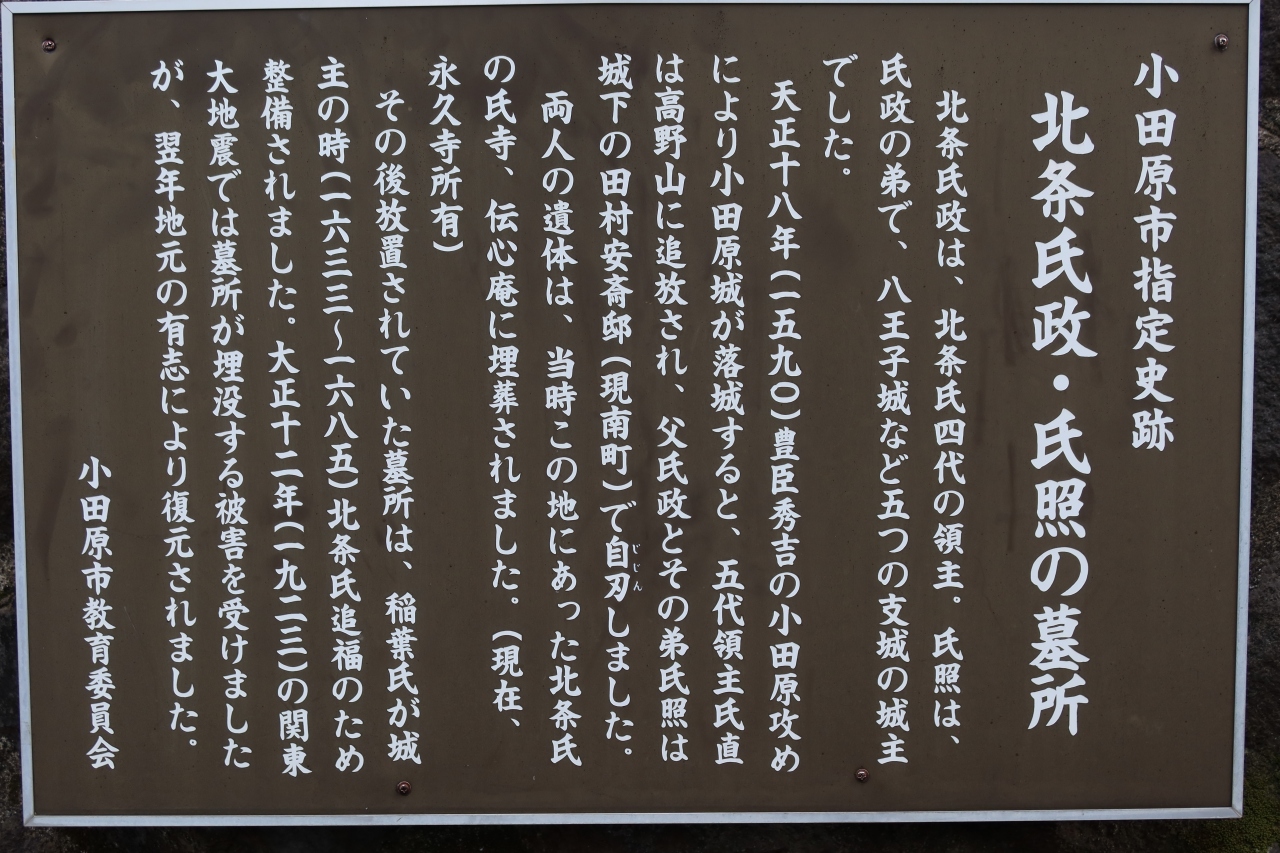 小田原市指定史跡
北条氏政・氏照の墓所
北条氏政は、北条氏四代の領主。氏照は、
氏政の弟で、八王子城など五つの支城の城主
でした。
天正十八年(一五九〇)豊臣秀吉の小田原攻め
により小田原城が落城すると、五代領主氏直
は高野山に追放され、父氏政とその弟氏照は
城下の田村安斎邸(現南町)で自刃しました。
じじん
両人の遺体は、当時この地にあった北条氏
の氏寺、伝心庵に埋葬されました。(現在、
永久寺所有)
その後放置されていた墓所は、稲葉氏が城
主の時(一六三三~一六八五)北条氏追福のため
整備されました。大正十二年(一九二三)の関東
大地震では墓所が埋没する被害を受けました
が、翌年地元の有志により復元されました。
小田原市教育委員会